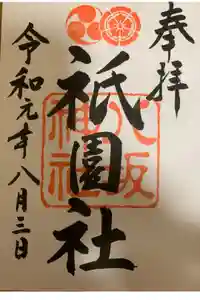 奉拝
八坂神社
祇園社
令和元年八月三日